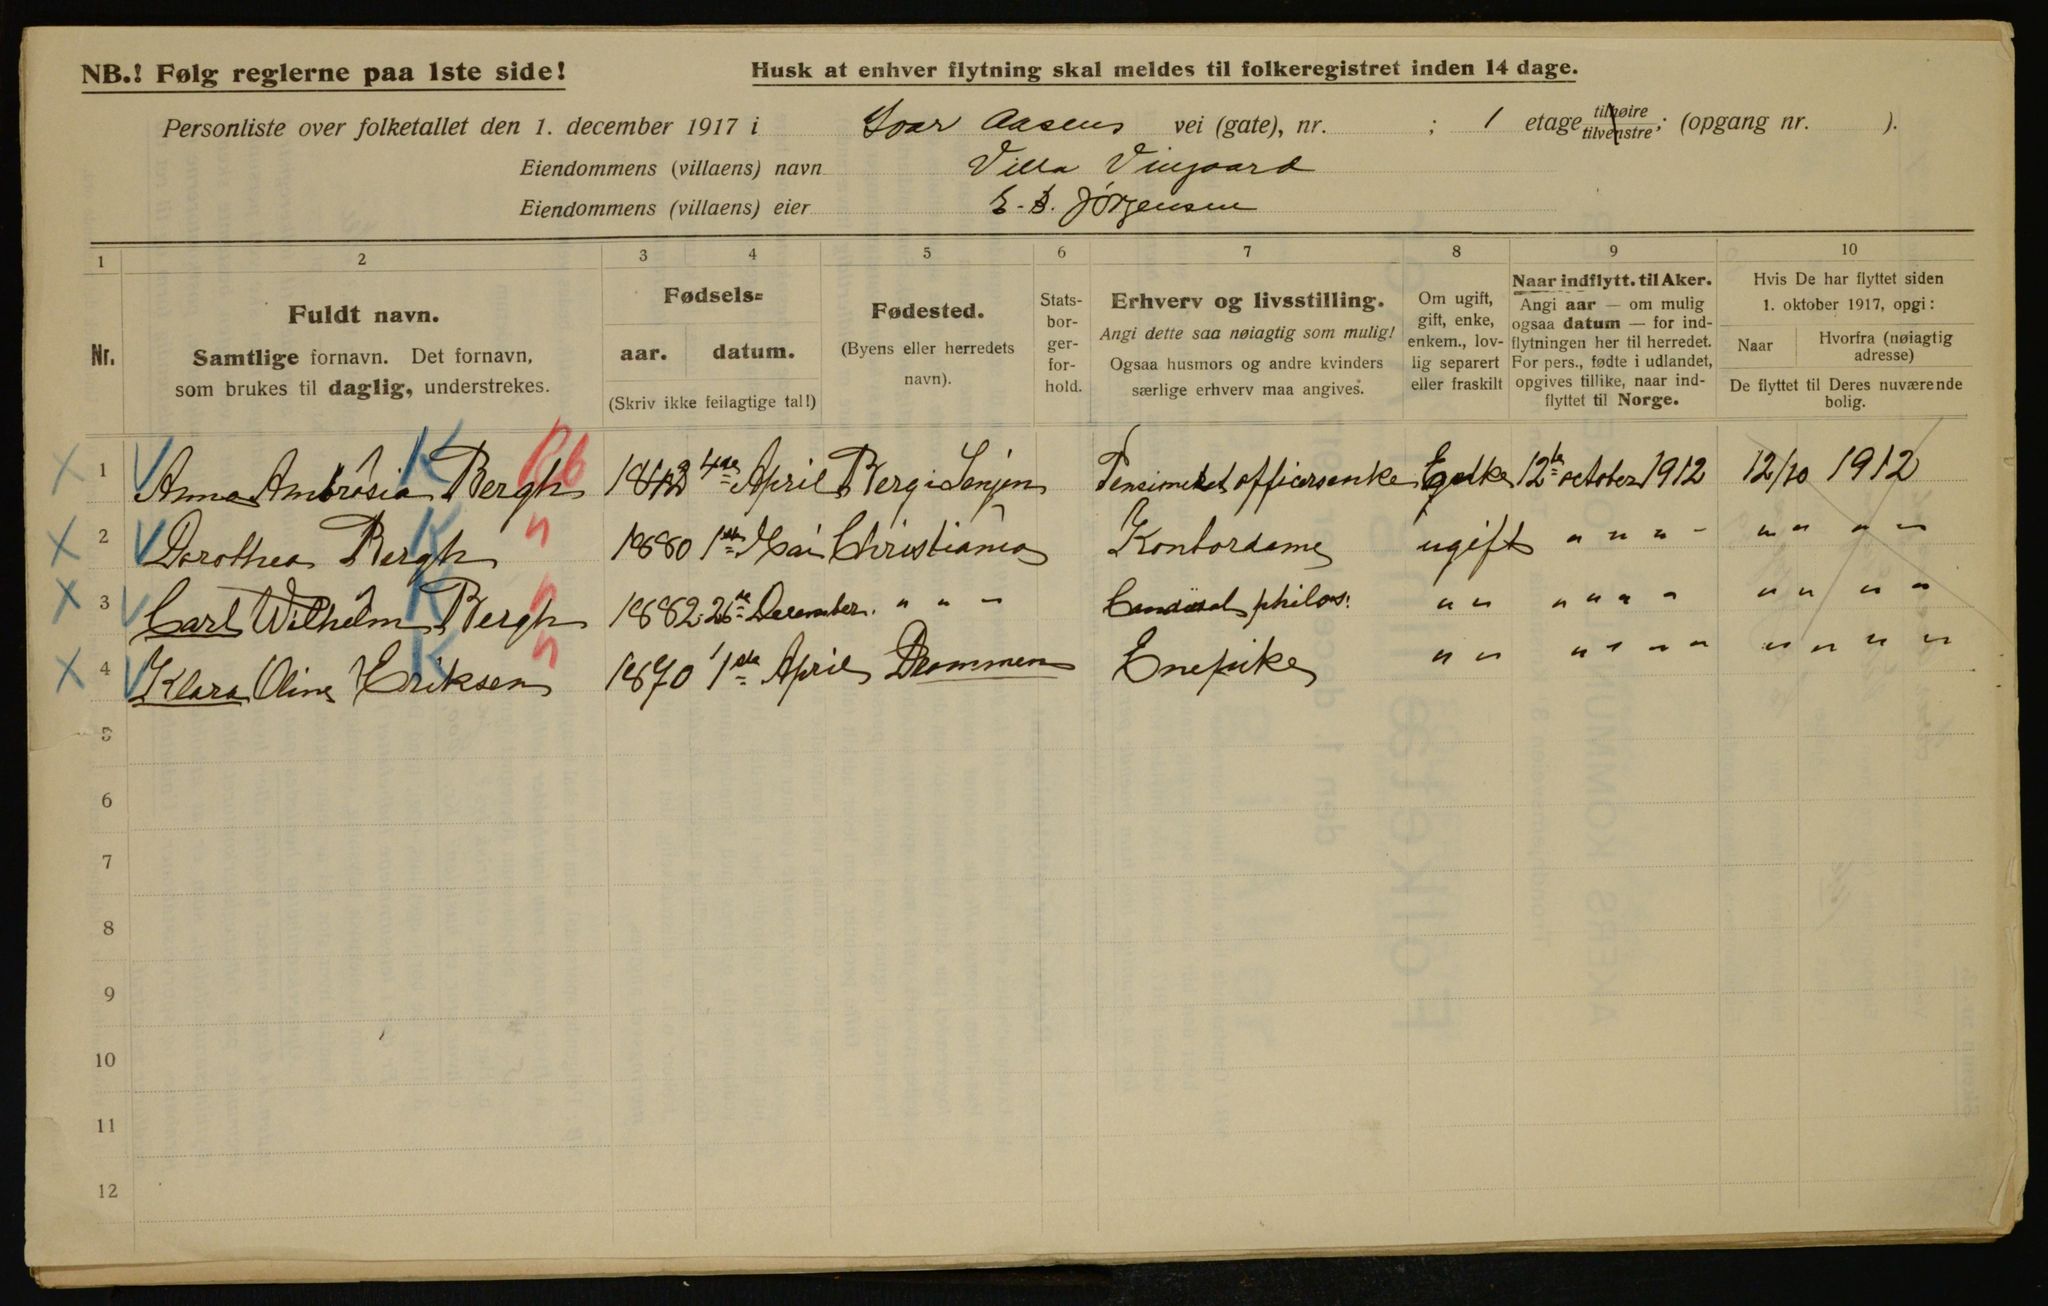 NB.! Følg reglerne paa 1ste side!
Husk at enhver flytning skal meldes til folkeregistret inden 14 dage.
Personliste over folketallet den 1. december 1917 i Ivar Aasens vei (gate), nr. ; 1 etage tilhøire tilvenstre; (opgang nr. ).
Eiendommens (villaens) navn Villa Vingaard
Eiendommens (villaens) eier E. B. Jørgensen
1 2 3 4 5 6 7 8 9 10
Nr.
Fuldt navn.
Samtlige fornavn. Det fornavn,
som brukes til daglig, understrekes.
Fødsels=
aar. datum.
(Skriv ikke feilagtige tal!)
Fødested.
(Byens eller herredets
navn).
Stats-
bor-
ger-
for-
hold.
Erhverv og livsstilling.
Angi dette saa nøiagtig som mulig!
Ogsaa husmors og andre kvinders
særlige erhverv maa angives.
Om ugift,
gift, enke,
enkem., lov-
lig separert
eller fraskilt
Naar indflytt. til Aker.
Angi aar — om mulig
ogsaa datum — for ind-
flytningen her til herredet.
For pers., fødte i udlandet,
opgives tillike, naar ind-
flyttet til Norge.
Hvis De har flyttet siden
1. oktober 1917, opgi:
Naar
Hvorfra (nøiagtig
adresse)
De flyttet til Deres nuværende
bolig.
X 1 V Anna Ambrosia Bergh K 4de April Berg i Senjen Pensioneret officersenke Enke 12te october 1912 12/10 1912
X 2 V Dorothea Bergh K " 1880 1ste Mai Christiania Kontordame ugift " " " " " " " "
X 3 V Carl Wilhelm Bergh K " 1882 26de December. " " " philos. " " " " " " " " " "
X 4 V Klara Oline Eriksen K " 1870 1ste April Drammen Enepike " " " " " " " " " "
5
6
7
8
9
10
11
12